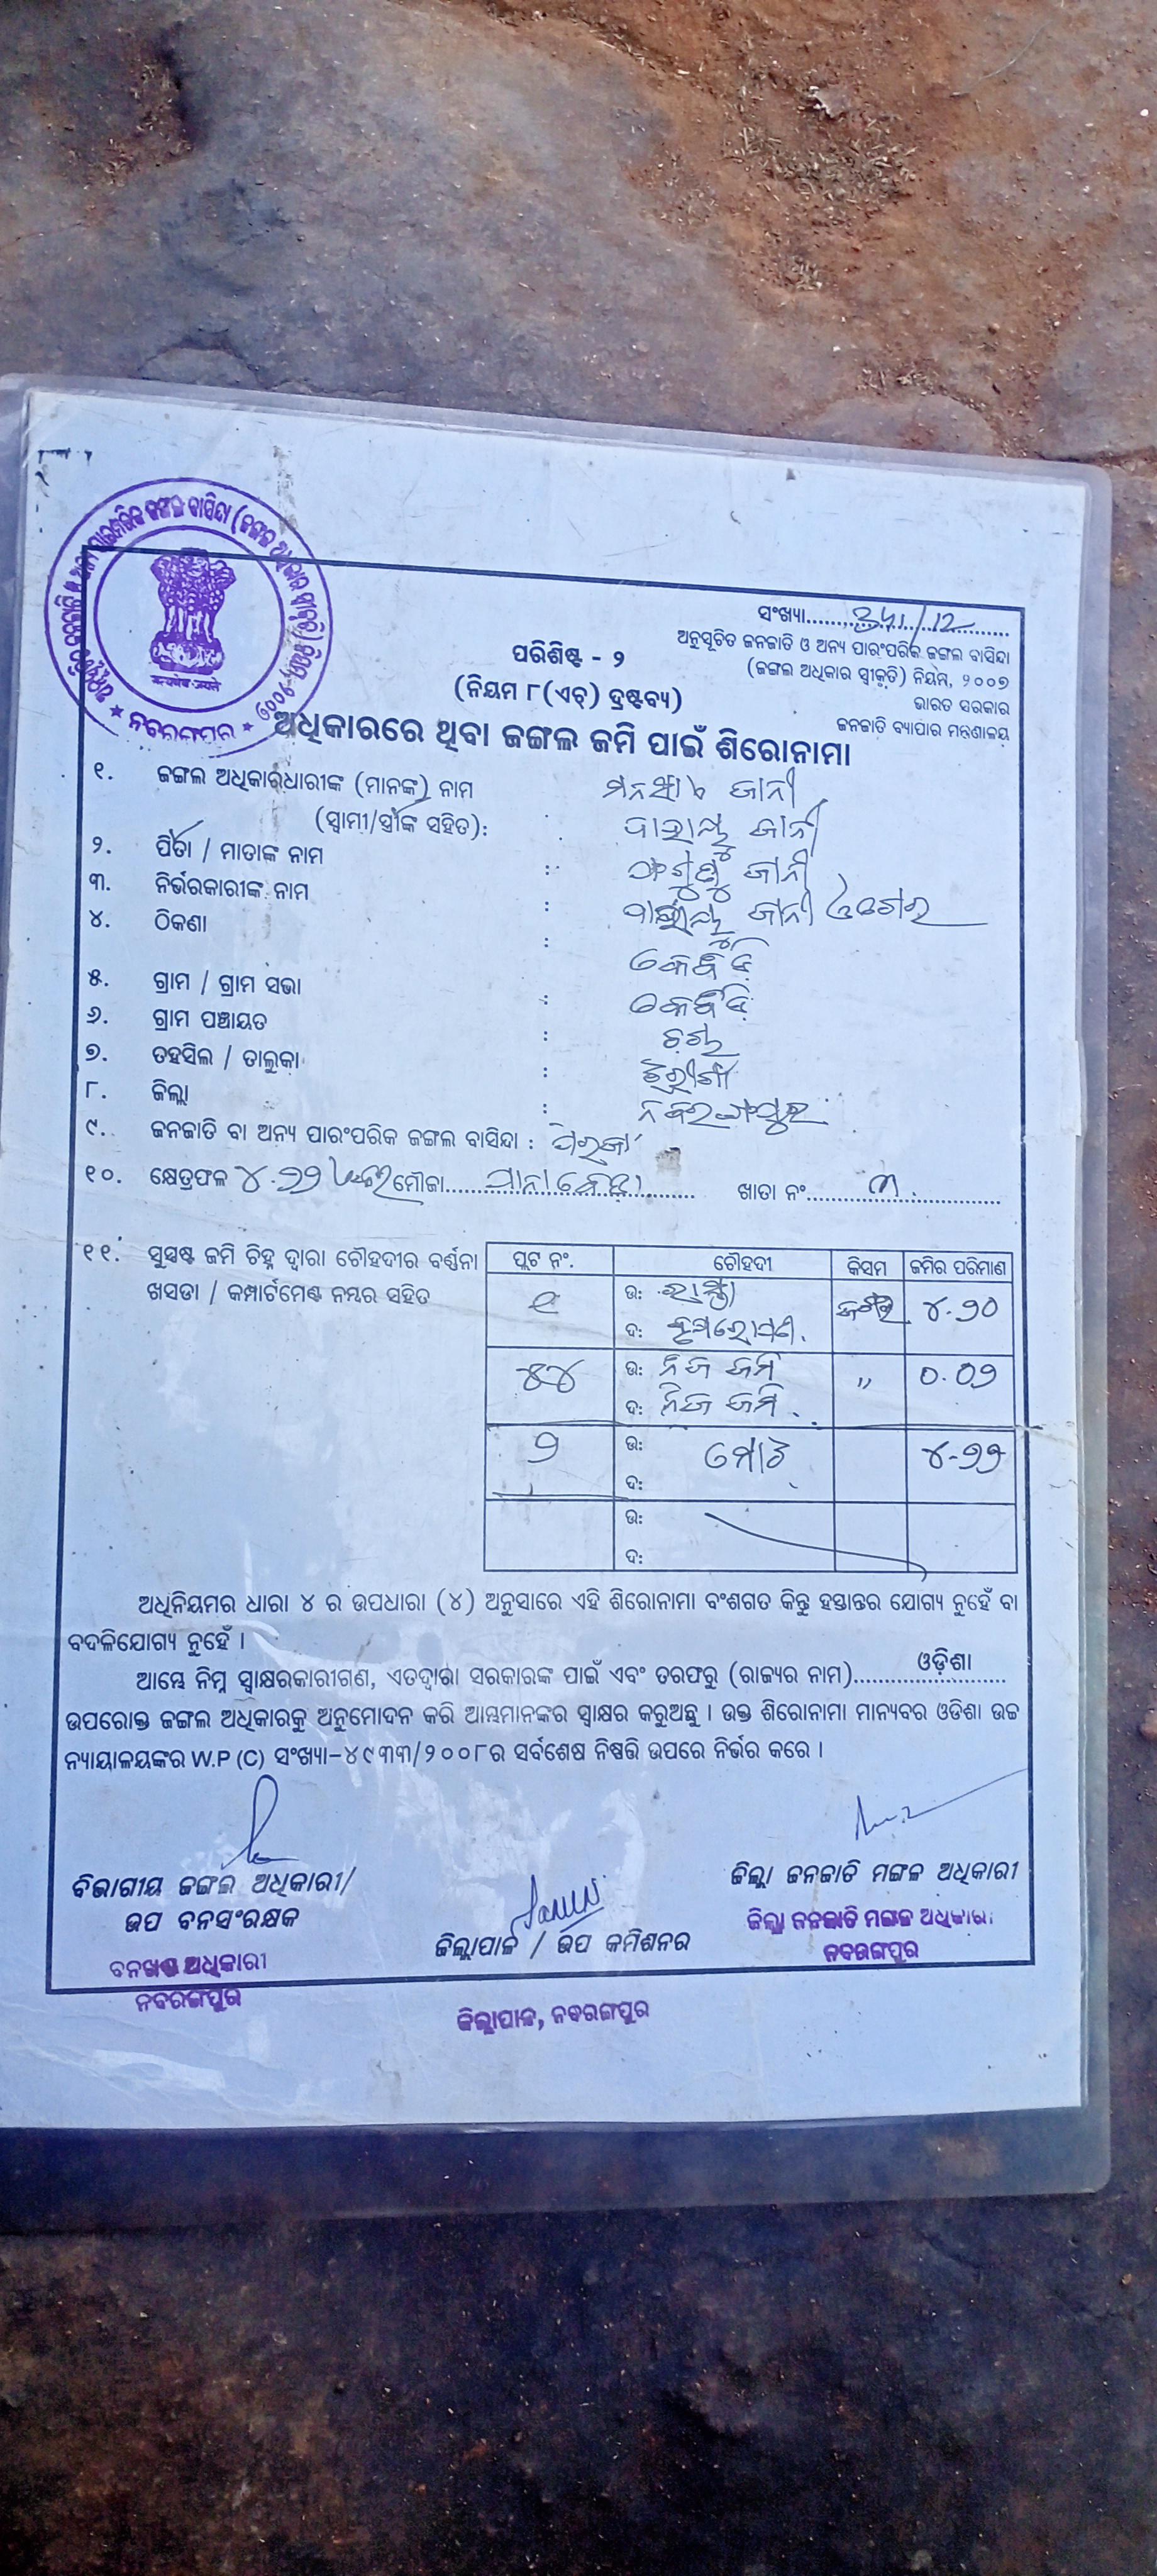 ସଂଖ୍ୟା.......341/12.......
ଅନୁସୂଚିତ ଜନଜାତି ଓ ଅନ୍ୟ ପାରଂପରିକ ଜଙ୍ଗଲ ବାସିନ୍ଦା
(ଜଙ୍ଗଲ ଅଧିକାର ସ୍ୱୀକୃତି) ନିୟମ, ୨୦୦୭
ଭାରତ ସରକାର
ଜନଜାତି ବ୍ୟାପାର ମନ୍ତ୍ରଣାଳୟ
ପରିଶିଷ୍ଟ - ୨
(ନିୟମ ୮(ଏଚ୍) ଦ୍ରଷ୍ଟବ୍ୟ)
ଅଧିକାରରେ ଥିବା ଜଙ୍ଗଲ ଜମି ପାଇଁ ଶିରୋନାମା
୧. ଜଙ୍ଗଲ ଅଧିକାରଧାରୀଙ୍କ (ମାନଙ୍କ) ନାମ ଜାନୀ
(ସ୍ୱାମୀ/ସ୍ତ୍ରୀଙ୍କ ସହିତ): ଜାନୀ
୨. ପିତା / ମାତାଙ୍କ ନାମ : ଜାନୀ
୩. ନିର୍ଭରକାରୀଙ୍କ ନାମ : ଜାନୀ
୪. ଠିକଣା :
୫. ଗ୍ରାମ / ଗ୍ରାମ ସଭା :
୬. ଗ୍ରାମ ପଞ୍ଚାୟତ :
୭. ତହସିଲ / ତାଲୁକା : ଝରୀଗାଁ
୮. ଜିଲ୍ଲା : ନବରଙ୍ଗପୁର
୯. ଜନଜାତି ବା ଅନ୍ୟ ପାରଂପରିକ ଜଙ୍ଗଲ ବାସିନ୍ଦା : ପରଜା
୧୦. କ୍ଷେତ୍ରଫଳ ୪.୨୨ ମୌଜା ଖାତା ନଂ....୩....
୧୧. ସୁସ୍ପଷ୍ଟ ଜମି ଚିହ୍ନ ଦ୍ୱାରା ଚୌହଦୀର ବର୍ଣ୍ଣନା
ଖସଡା / କମ୍ପାର୍ଟମେଣ୍ଟ ନମ୍ବର ସହିତ
ପ୍ଲଟ ନଂ. ଚୌହଦୀ କିସମ ଜମିର ପରିମାଣ
୧ ଉ: ରାସ୍ତା ଜଙ୍ଗଲ ୪.୨୦
ଦ: ବୃକ୍ଷରୋପଣ.
୪୪ ଉ: ନିଜ ଜମି " ୦.୦୨
ଦ: ନିଜ ଜମି
୨ ଉ: ମୋଟ ୪-୨୨
ଦ:
ଉ:
ଦ:
ଅଧିନିୟମର ଧାରା ୪ ର ଉପଧାରା (୪) ଅନୁସାରେ ଏହି ଶିରୋନାମା ବଂଶଗତ କିନ୍ତୁ ହସ୍ତାନ୍ତର ଯୋଗ୍ୟ ନୁହେଁ ବା
ବଦଳିଯୋଗ୍ୟ ନୁହେଁ ।
ଆମ୍ଭେ ନିମ୍ନ ସ୍ୱାକ୍ଷରକାରୀଗଣ, ଏତଦ୍ୱାରା ସରକାରଙ୍କ ପାଇଁ ଏବଂ ତରଫରୁ (ରାଜ୍ୟର ନାମ).......ଓଡ଼ିଶା.......
ଉପରୋକ୍ତ ଜଙ୍ଗଲ ଅଧିକାରକୁ ଅନୁମୋଦନ କରି ଆମ୍ଭମାନଙ୍କର ସ୍ୱାକ୍ଷର କରୁଅଛୁ । ଉକ୍ତ ଶିରୋନାମା ମାନ୍ୟବର ଓଡିଶା ଉଚ୍ଚ
ନ୍ୟାୟାଳୟଙ୍କର W.P (C) ସଂଖ୍ୟା-୪୯୩୩/୨୦୦୮ର ସର୍ବଶେଷ ନିଷ୍ପତ୍ତି ଉପରେ ନିର୍ଭର କରେ ।
ବିଭାଗୀୟ ଜଙ୍ଗଲ ଅଧିକାରୀ/
ଉପ ବନସଂରକ୍ଷକ
ବନଖଣ୍ଡ ଅଧିକାରୀ
ନବରଙ୍ଗପୁର
ଜିଲ୍ଲାପାଳ / ଉପ କମିଶନର
ଜିଲ୍ଲାପାଳ, ନବରଙ୍ଗପୁର
ଜିଲ୍ଲା ଜନଜାତି ମଙ୍ଗଳ ଅଧିକାରୀ
ଜିଲ୍ଲା ଜନଜାତି ମଙ୍ଗଳ ଅଧିକାରୀ
ନବରଙ୍ଗପୁର